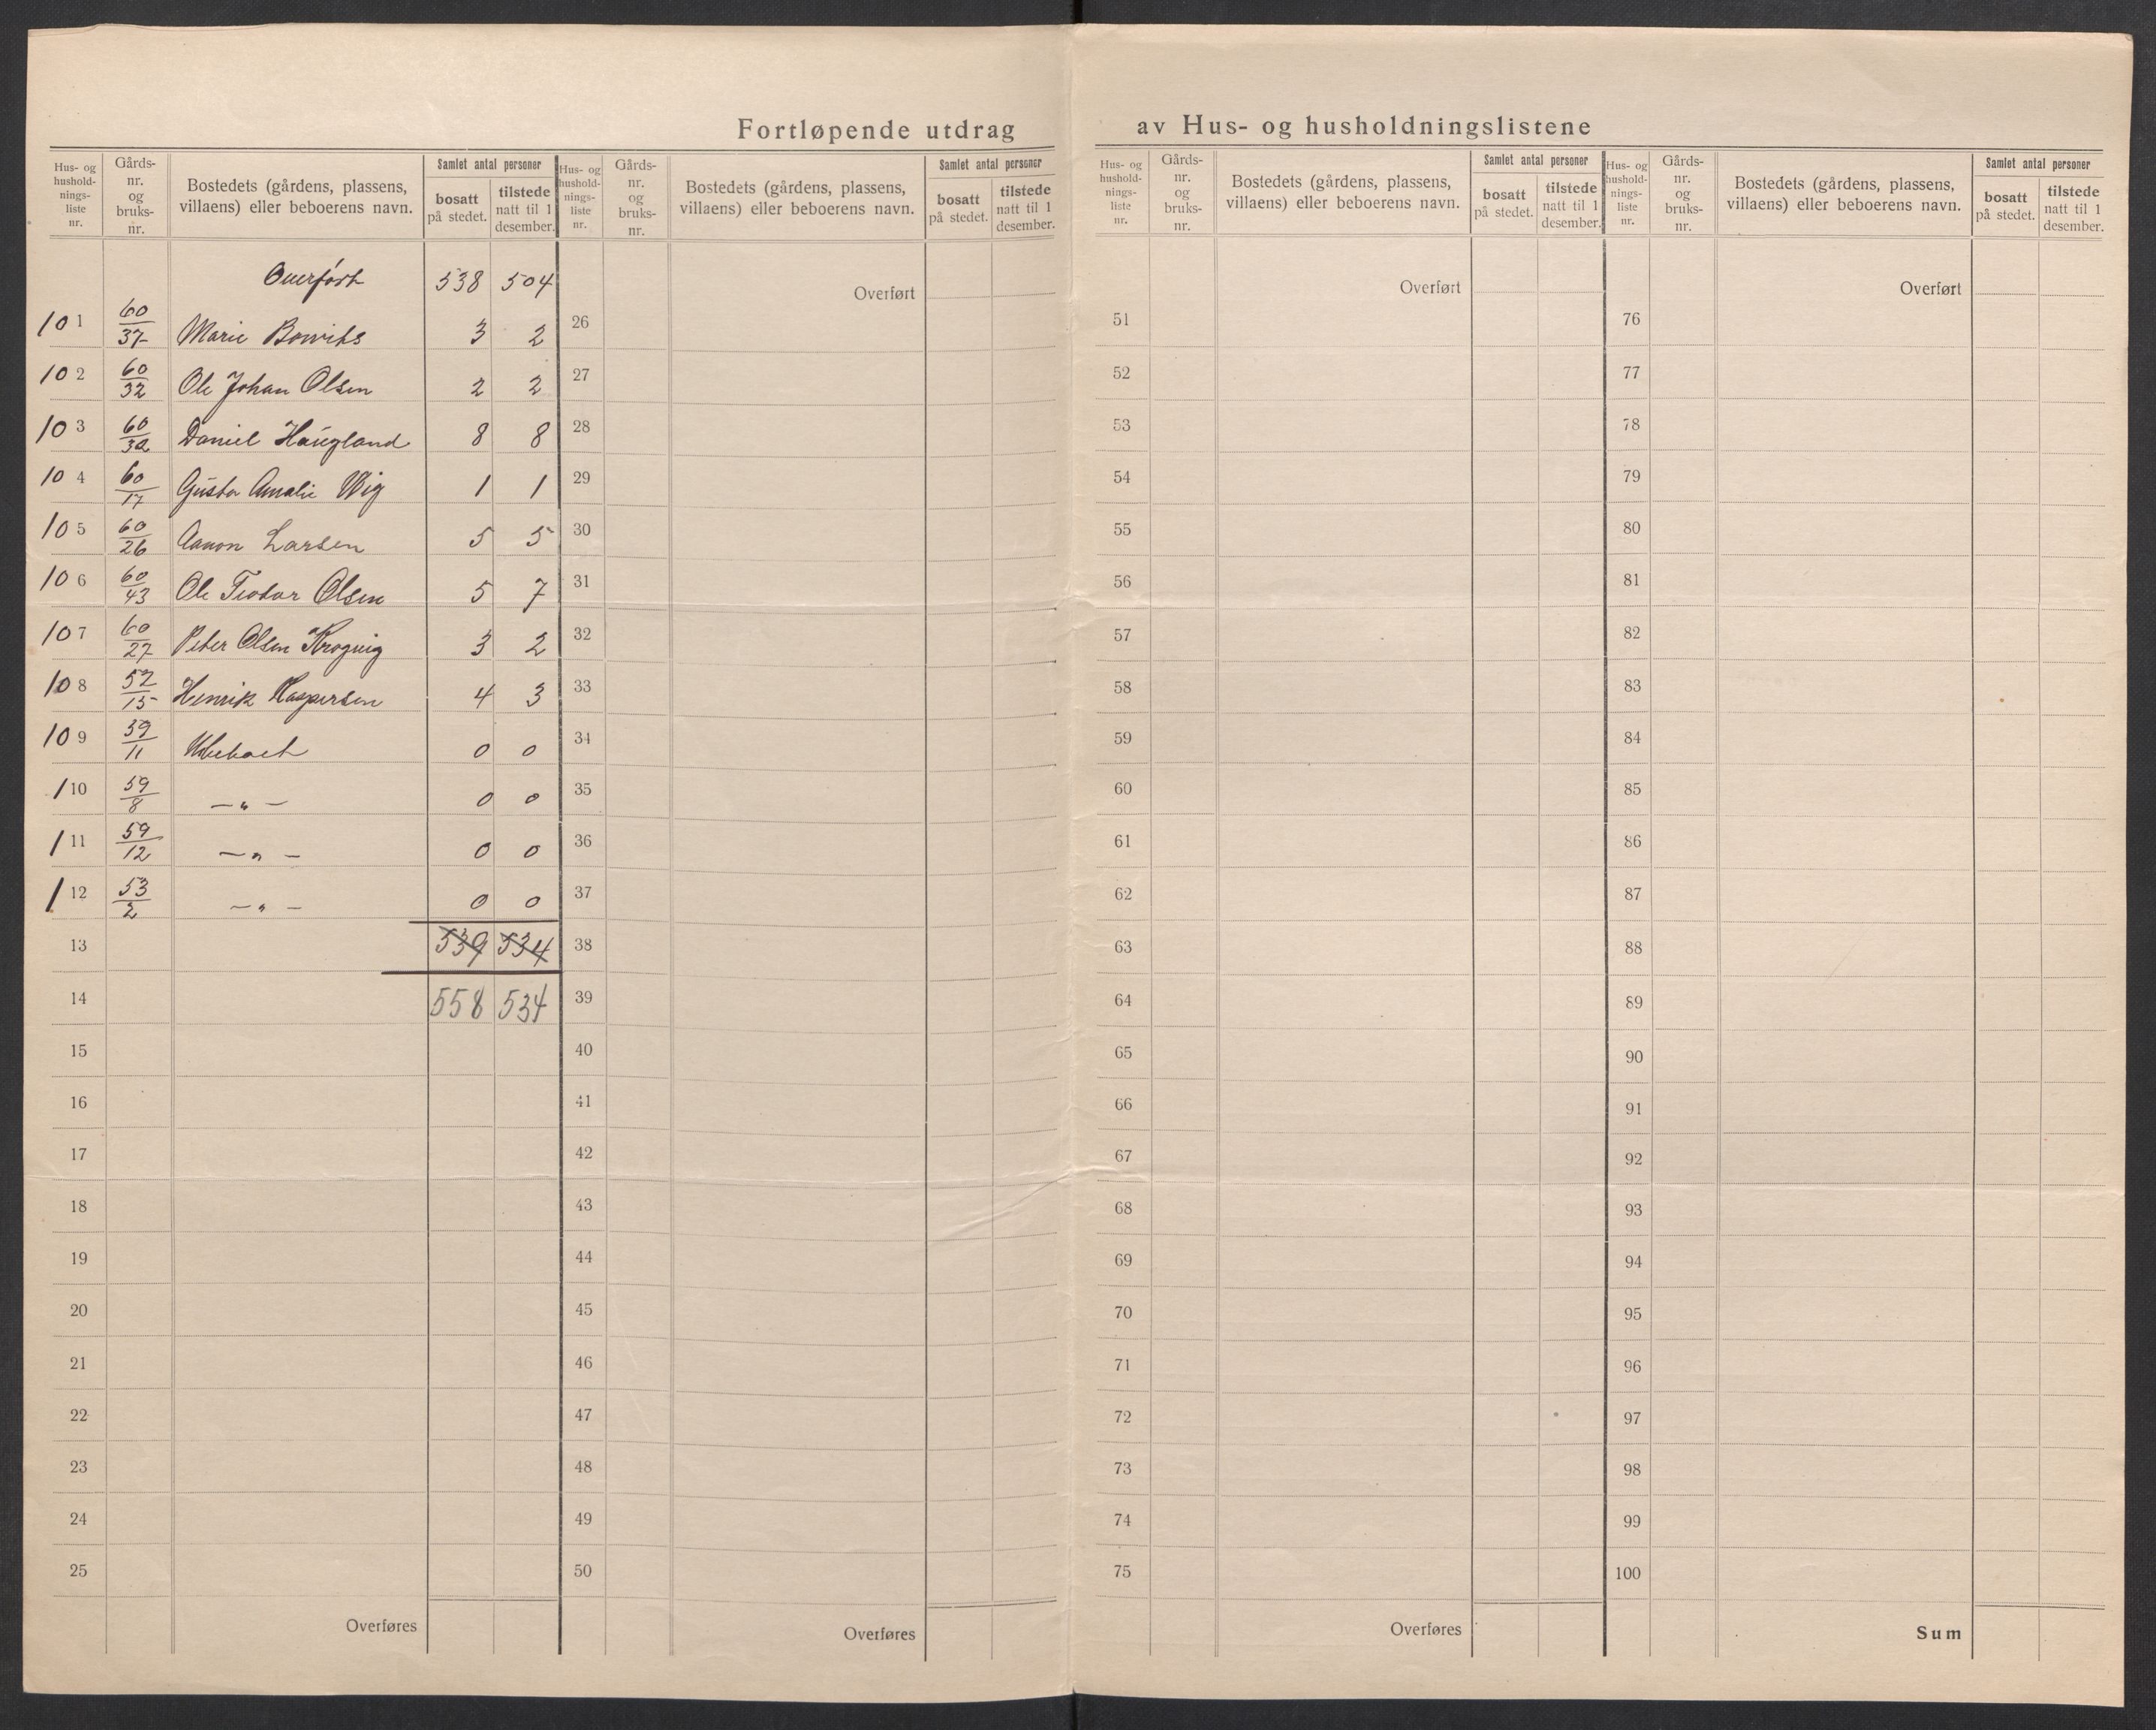 Fortløpende utdrag av Hus- og husholdningslistene
Hus- og husholdnings-liste nr. Gårds-nr. og bruks-nr. Bostedets (gårdens, plassens, villaens) eller beboerens navn. Samlet antal personer bosatt på stedet. tilstede natt til 1 desember.
Hus- og husholdnings-liste nr. Gårds-nr. og bruks-nr. Bostedets (gårdens, plassens, villaens) eller beboerens navn. Samlet antal personer bosatt på stedet. tilstede natt til 1 desember.
Hus- og husholdnings-liste nr. Gårds-nr. og bruks-nr. Bostedets (gårdens, plassens, villaens) eller beboerens navn. Samlet antal personer bosatt på stedet. tilstede natt til 1 desember.
Hus- og husholdnings-liste nr. Gårds-nr. og bruks-nr. Bostedets (gårdens, plassens, villaens) eller beboerens navn. Samlet antal personer bosatt på stedet. tilstede natt til 1 desember.
Overført 538 504
101 60/37 Marie 3 2
102 60/32 Ole Johan Olsen 2 2
103 60/32 Daniel Haugland 8 8
104 60/17 Gusta Amalie Wig 1 1
105 60/26 Aanon Larsen 5 5
106 60/43 Ole Teodor Olsen 5 7
107 60/27 Peter Olsen Krogvig 3 2
108 52/15 Henrik Kaspersen 4 3
109 39/11 Ubeboet 0 0
110 59/8 — „ — 0 0
111 59/12 — „ — 0 0
112 53/2 — „ — 0 0
13 539 534
14 558 534
15
16
17
18
19
20
21
22
23
24
25
Overføres
Overført
26
27
28
29
30
31
32
33
34
35
36
37
38
39
40
41
42
43
44
45
46
47
48
49
50
Overføres
Overført
51
52
53
54
55
56
57
58
59
60
61
62
63
64
65
66
67
68
69
70
71
72
73
74
75
Overføres
Overført
76
77
78
79
80
81
82
83
84
85
86
87
88
89
90
91
92
93
94
95
96
97
98
99
100
Sum